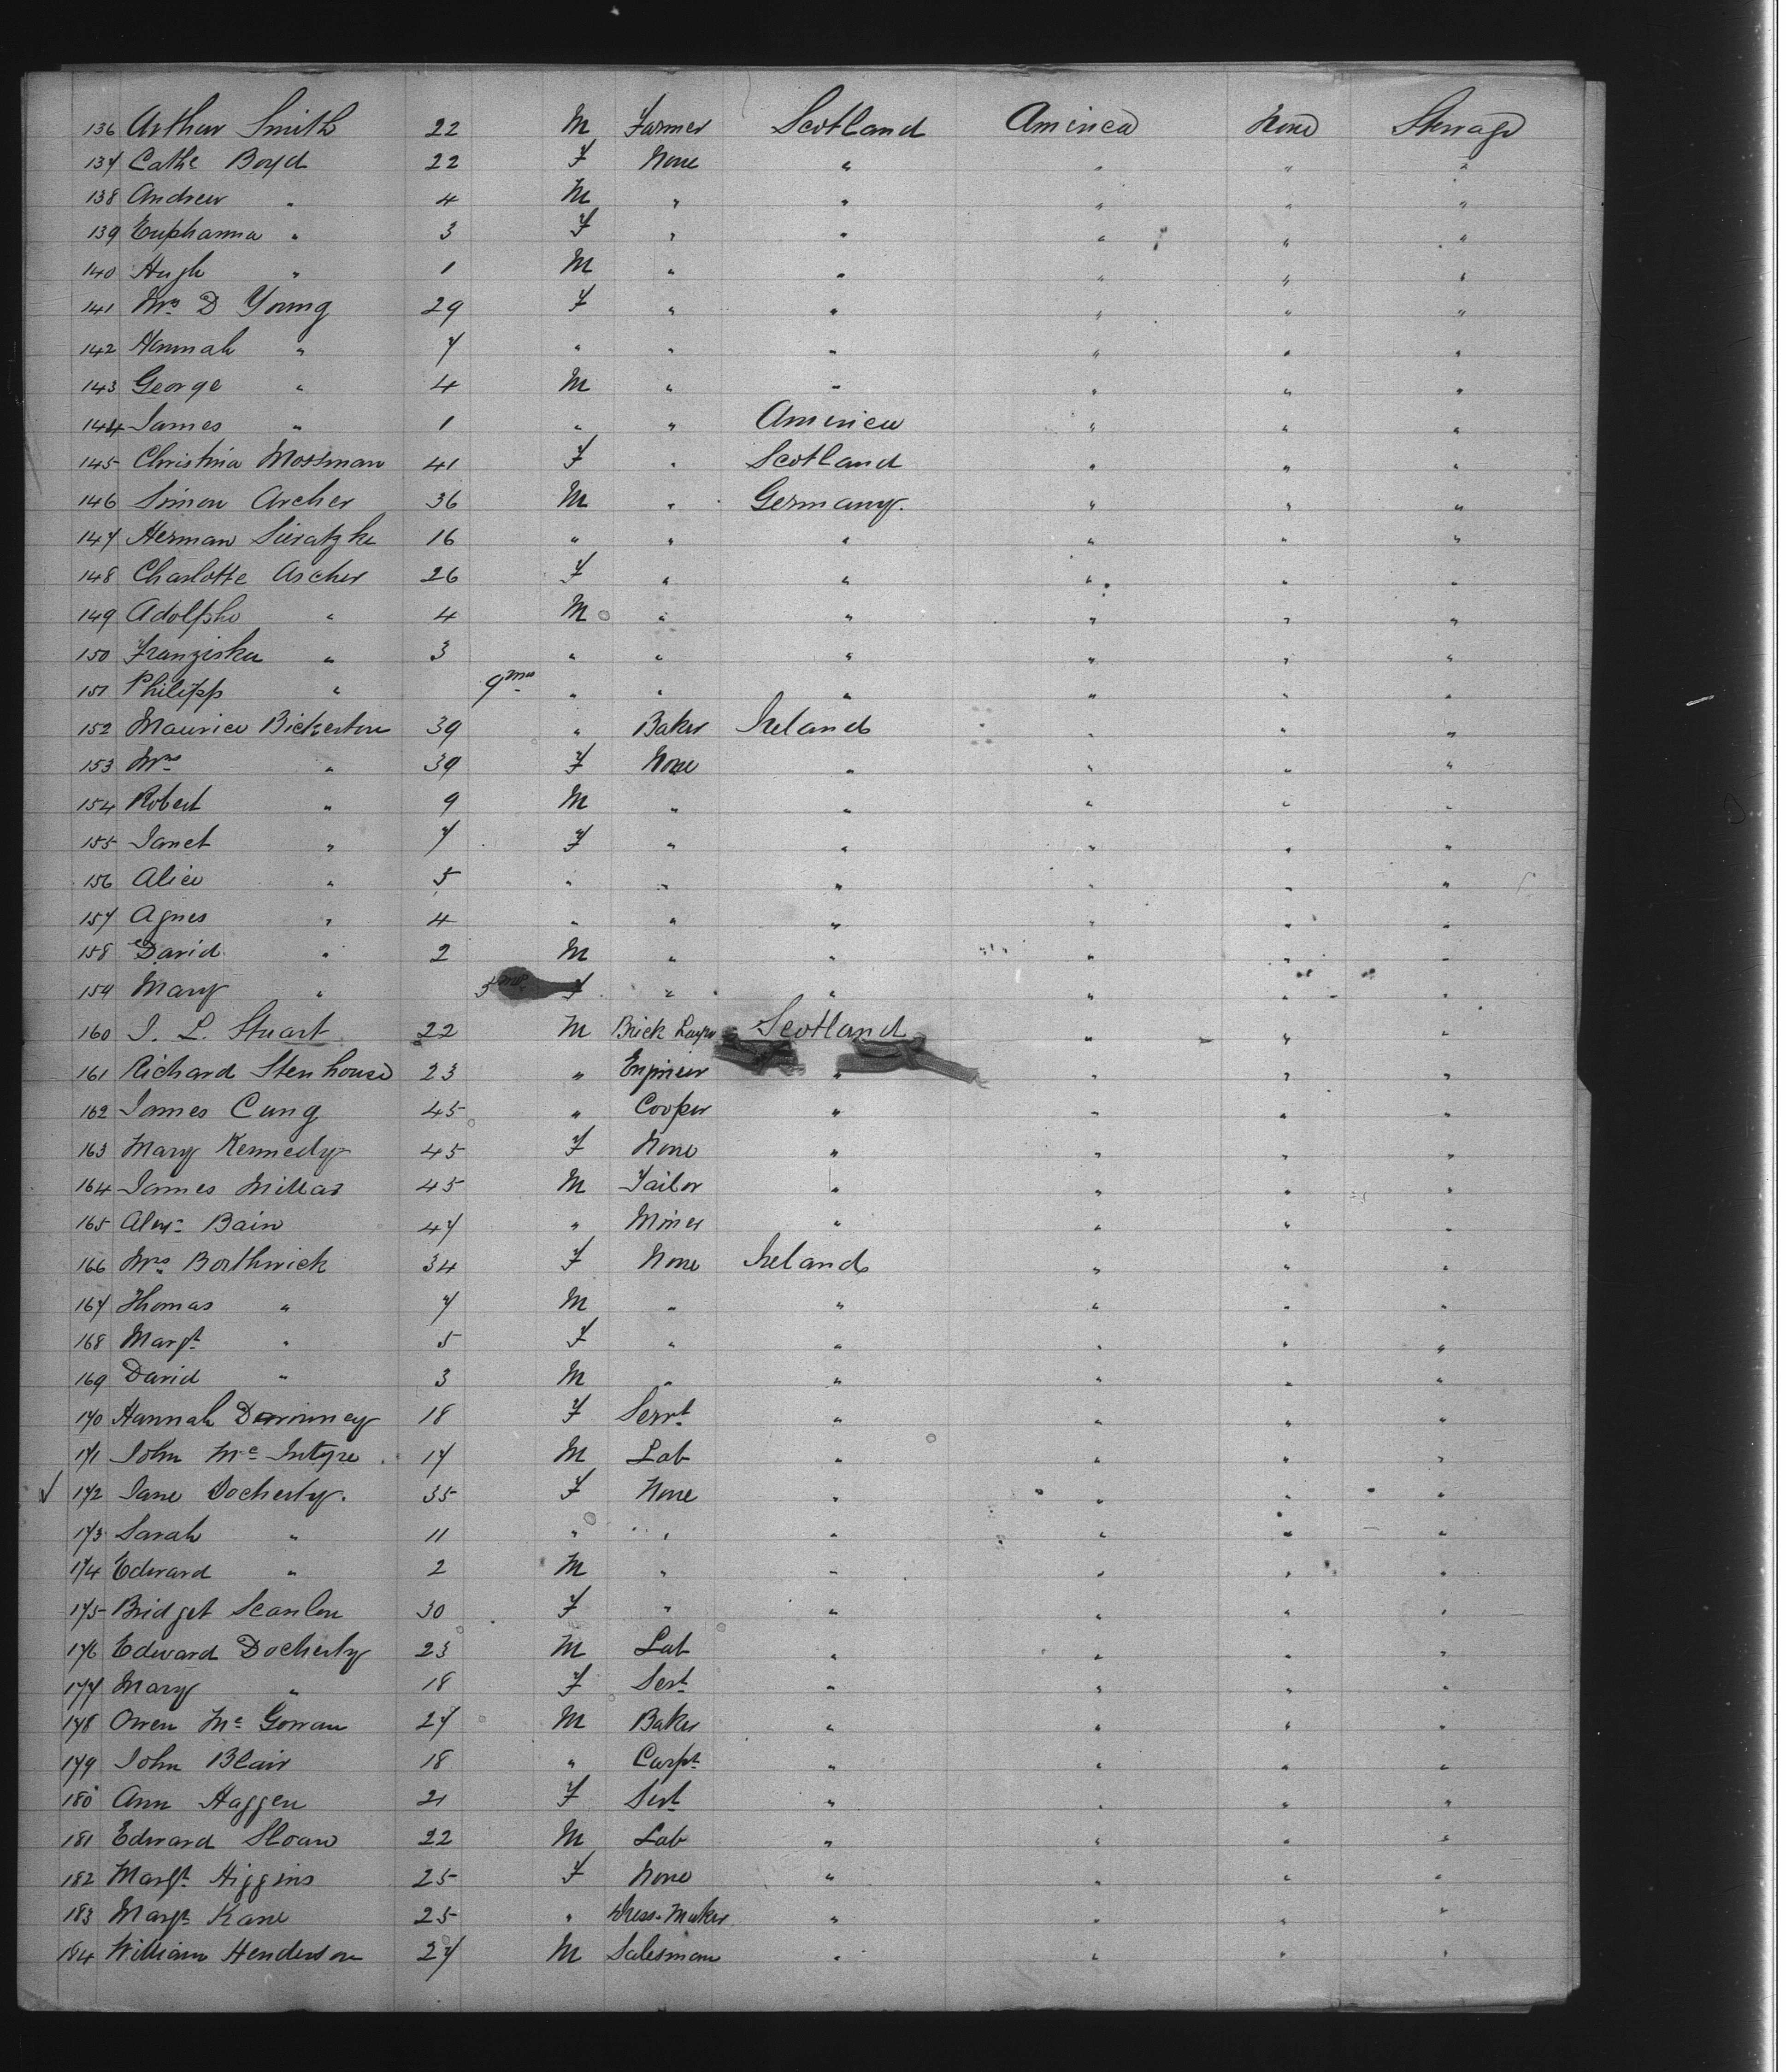 136 Arthur Smith 22 M Farmer Scotland America None Steerage
137 Cathe Boyd 22 F None " " " "
138 Andrew " 4 M " " " " "
139 Euphamia " 3 F " " " " "
140 Hugh " 1 M " " " " "
141 Mrs D Young 29 F " " " " "
142 Hannah " 7 " " " " " "
143 George " 4 M " " " " "
144 James " 1 " " America " " "
145 Christina Mossman 41 F " Scotland " " "
146 Simon Archer 36 M " Germany. " " "
147 Herman 16 " " " " " "
148 Charlotte Archer 26 F " " " " "
149 Adolphe " 4 M " " " " "
150 Franziska " 3 " " " " " "
151 Philipp " 9 mos " " " " " "
152 Maurice Bickerton 39 " Baker Ireland " " "
153 Mrs " 39 F None " " " "
154 Robert " 9 M " " " " "
155 Janet " 7 F " " " " "
156 Alice " 5 " " " " " "
157 Agnes " 4 " " " " " "
158 David " 2 M " " " " "
159 Mary " 5 mos F " " " " "
160 J. L. Stuart 22 M Brick Layer Scotland " " "
161 Richard Stenhouse 23 " Engineer " " " "
162 James Cung 45 " Cooper " " " "
163 Mary Kennedy 45 F None " " " "
164 James Millar 45 M Tailor " " " "
165 Alexr Bain 47 " Miner " " " "
166 Mrs Borthwick 34 F None Ireland " " "
167 Thomas " 7 M " " " " "
168 Margt " 5 F " " " " "
169 David " 3 M " " " " "
170 Hannah 18 F Servt " " " "
171 John McIntyre 17 M Lab " " " "
172 Jane Docherty. 35 F None " " " "
173 Sarah " 11 " " " " " "
174 Edward " 2 M " " " " "
175 Bridget Scanlon 30 F " " " " "
176 Edward Docherty 23 M Lab " " " "
177 Mary " 18 F Sert " " " "
178 Owen McGowan 27 M Baker " " " "
179 John Blair 18 " Carpt " " " "
180 Ann Haggen 21 F Sert " " " "
181 Edward Sloan 22 M Lab " " " "
182 Margt Higgins 25 F None " " " "
183 Margt Kane 25 " Dress-Maker " " " "
184 William Henderson 27 M Salesman " " " "